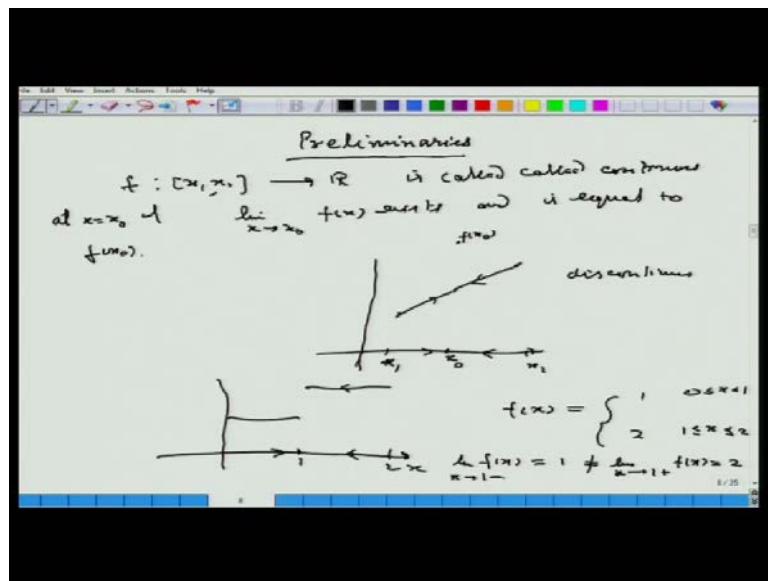 File Edit View Insert Actions Tools Help
Preliminaries
f : [x₁, x₂] → ℝ is called called continuous
at x=x₀ if lim x→x₀ f(x) exists and is equal to
f(x₀).
f(x₀)
discontinuous
x₁ x₀ x₂
f(x) = { 1 0≤x<1
2 1≤x≤2
1 2 x
lim x→1− f(x) = 1 ≠ lim x→1+ f(x) = 2
8 8/35